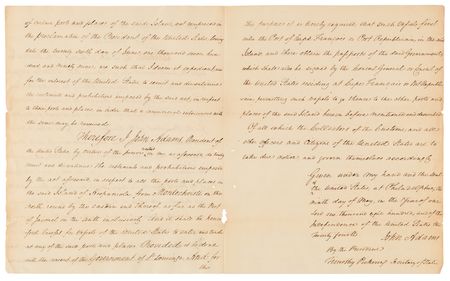 of certain ports and places of the said Island, not comprised in
the proclamation of the President of the United States bearing
date the twenty sixth day of June one thousand seven hun-
dred and ninety nine, are such that I deem it expedient
for the interest of the United States to remit and discontinue
the restraints and prohibitions imposed by the said act, in respect
to those ports and places, in order that a commercial intercourse with
the same may be renewed.
Therefore I John Adams President of
the United States, by virtue of the powers vested in me as aforesaid, do hereby
remit and discontinue the restraints and prohibitions imposed
by the act aforesaid, in respect to all the ports and places in
the said Island of Hispaniola, from Monte Christi on the
north, round by the eastern and thereof as far as the Port
of Jacmel on the south inclusively. And it shall be hence
forth lawful for vessels of the United States to enter and trade
at any of the said ports and places Provided it be done
with the consent of the Government of St. Domingo. And for
this
this purpose it is hereby required that such vessels first
enter the Port of Cape François or Port Republicain, in the said
Island, and there obtain the passports of the said Government
which shall also be signed by the Consul General or Consul of
the United States residing at Cape François or Port Republi-
cain, permitting such vessels to go thence to the other ports and
places of the said Island herein before mentioned and described
Of all which the Collectors of the Customs, and all
other officers and citizens of the United States are to
take due notice and govern themselves accordingly.
Given under my hand and the Seal
of the United States at Philadelphia, the
ninth day of May, in the Year of our
Lord one thousand eight hundred, and of the
Independence of the United States the
twenty fourth
John Adams
By the President
Timothy Pickering Secretary of State